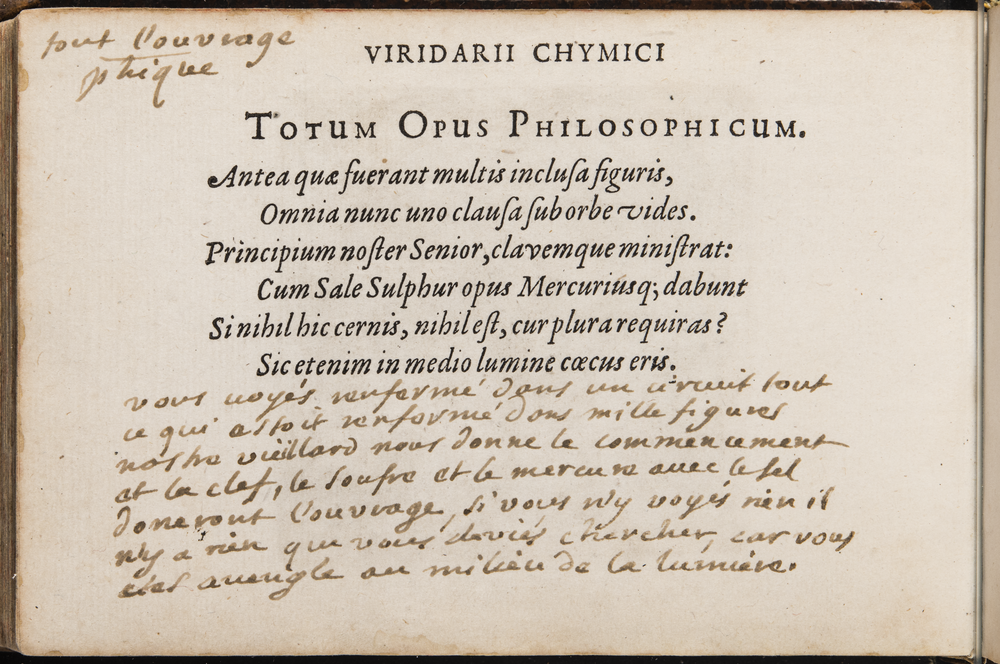 tout l'ouvrage
phique
VIRIDARII CHYMICI
TOTUM OPUS PHILOSOPHICUM.
Antea quæ fuerant multis inclusa figuris,
Omnia nunc uno clausa sub orbe vides.
Principium noster Senior, clavemque ministrat:
Cum Sale Sulphur opus Mercuriusq; dabunt
Si nihil hic cernis, nihil est, cur plura requiras?
Sic etenim in medio lumine cœcus eris.
vous voyés renfermé dans un circuit tout
ce qui estoit renformé dans mille figures
nostre vieillard nous donne le commencement
et la clef, le soufre et le mercure avec le sel
doneront l'ouvrage, si vous n'y voyés rien il
n'y a rien que vous deviés chercher, car vous
etes aveugle au milieu de la lumiére.